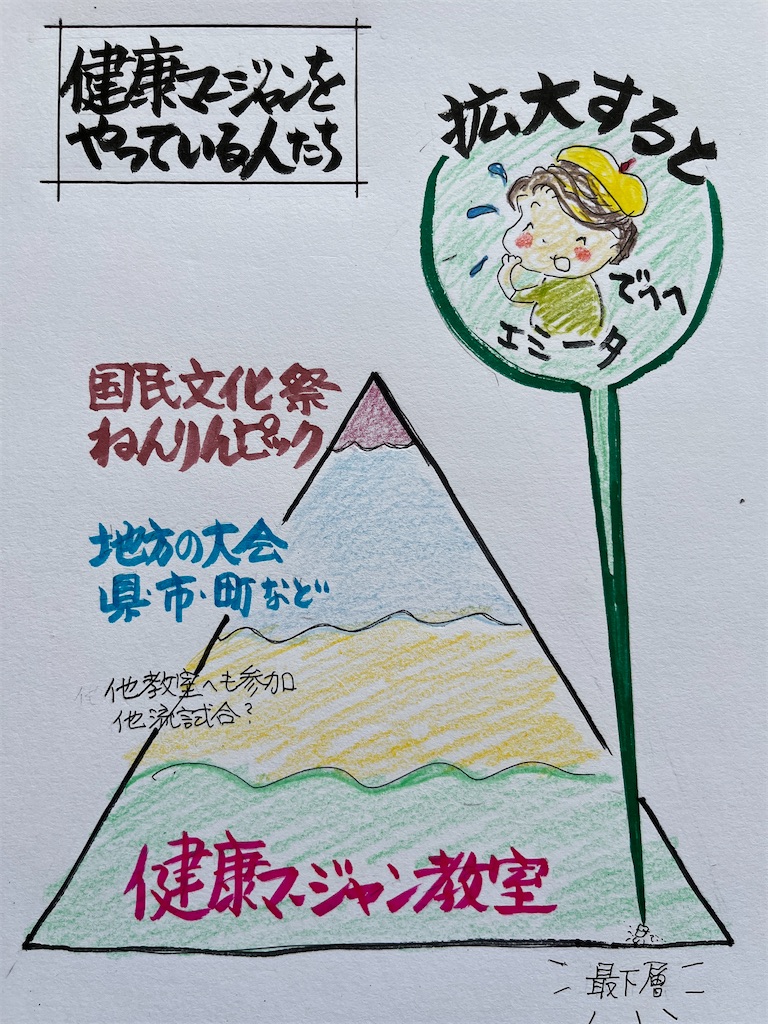 健康マージャンを
やっている人たち
拡大すると
でへへ
エミータ
国民文化祭
ねんりんピック
地方の大会
県・市・町など
他教室へも参加
他流試合?
健康マージャン教室
最下層